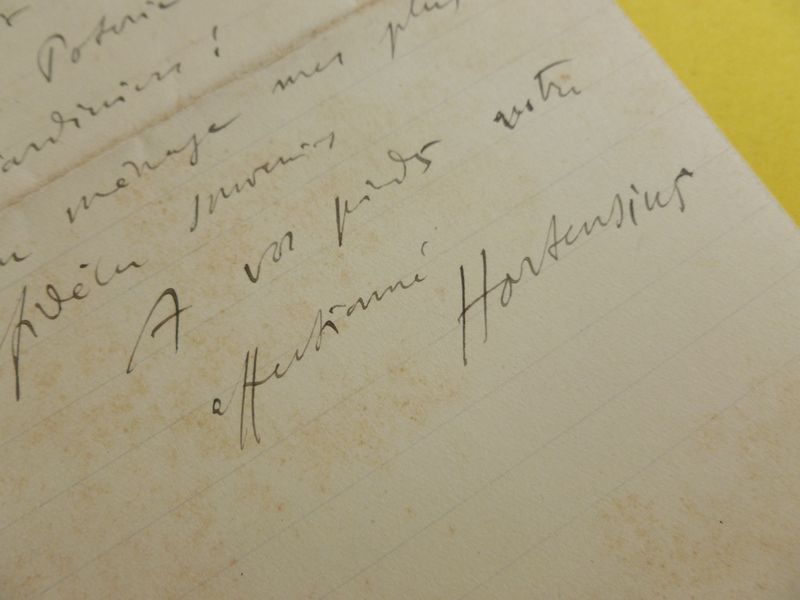 Poterie
jardiniers !
ménage mes plus
fidèles souvenirs
A vos pieds votre
affectionné Hortensius